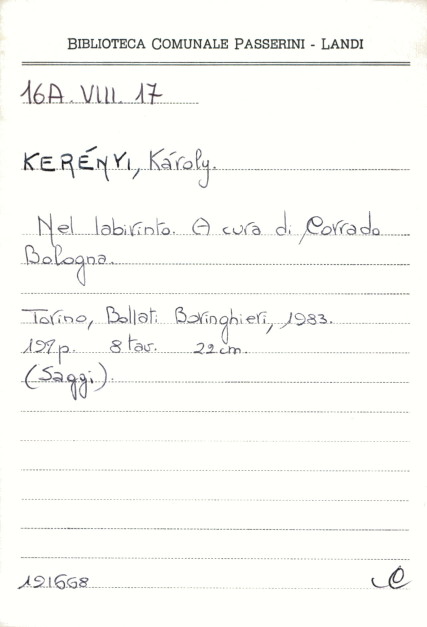 BIBLIOTECA COMUNALE PASSERINI - LANDI
16A. VIII. 17
KERÉNYI, Károly.
Nel labirinto. A cura di Corrado
Bologna.
Torino, Bollati Boringhieri, 1983.
192p. 8 tav. 22 cm.
(Saggi).
121668